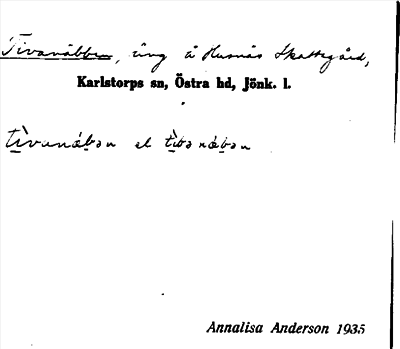 Tivanäbben, äng å Husnäs Skattegård,
Karlstorps sn, Östra hd, Jönk. l.
el
Annalisa Anderson 1935